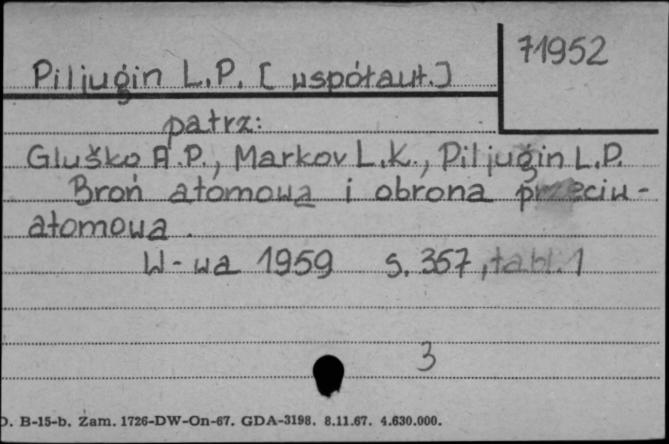 71952
Piljugin L.P. [współaut.]
patrz:
Gluško A.P., Markov L.K., Piljugin L.P.
Broń atomowa i obrona przeciw-
atomowa.
W-wa 1959 s. 357, tabl. 1
3
D. B-15-b. Zam. 1726-DW-On-67. GDA-3198. 8.11.67. 4.630.000.